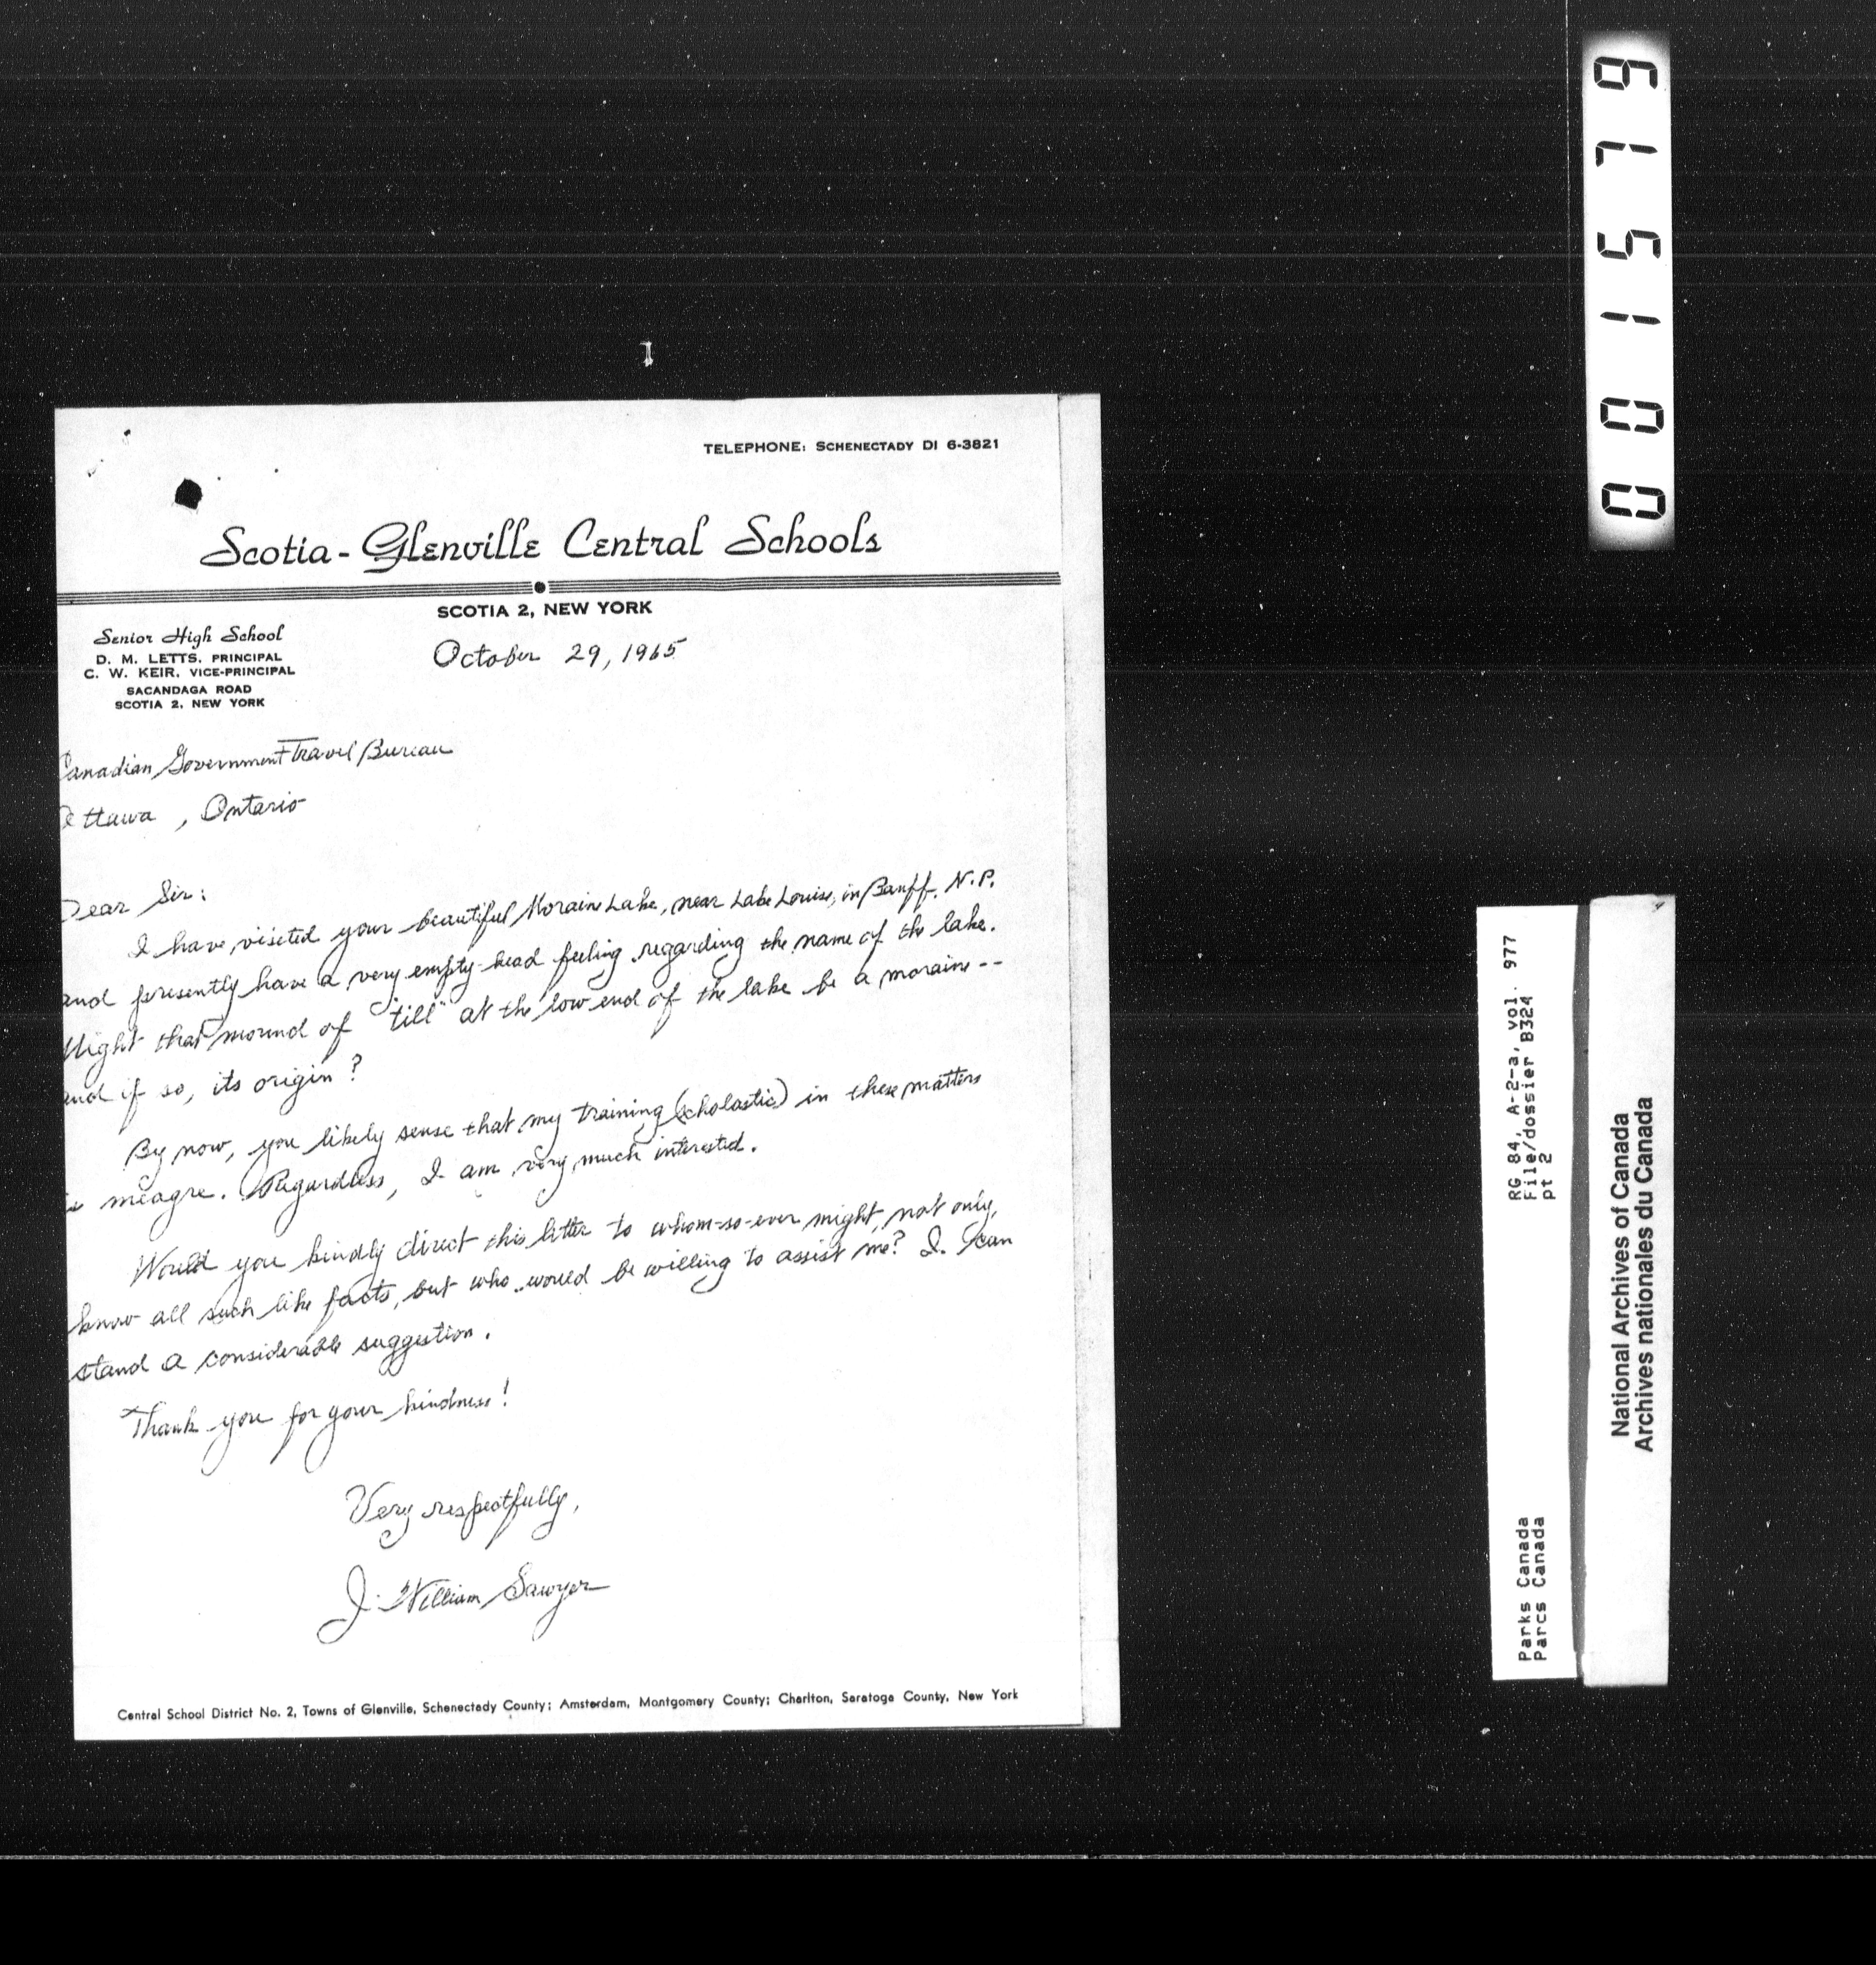 TELEPHONE: SCHENECTADY DI 6-3821
Scotia-Glenville Central Schools
SCOTIA 2, NEW YORK
Senior High School
D. M. LETTS, PRINCIPAL
C. W. KEIR, VICE-PRINCIPAL
SACANDAGA ROAD
SCOTIA 2, NEW YORK
October 29, 1965
Canadian Government Travel Bureau
Ottawa , Ontario
Dear Sir:
I have visited your beautiful Moraine Lake, near Lake Louise, in Banff. N.P.
and presently have a very empty-head feeling regarding the name of the lake.
Might that mound of "till" at the low end of the lake be a moraine--
and if so, its origin?
By now, you likely sense that my training (scholastic) in these matters
is meagre. Regardless, I am very much interested.
Would you kindly direct this letter to whom-so-ever might, not only,
know all such like facts, but who would be willing to assist me? I can
stand a considerable suggestion.
Thank you for your kindness!
Very respectfully,
J. William Sawyer
Central School District No. 2, Towns of Glenville, Schenectady County; Amsterdam, Montgomery County; Charlton, Saratoga County, New York
001579
RG 84, A-2-a, vol. 977
File/dossier B324
pt 2
Parks Canada
Parcs Canada
National Archives of Canada
Archives nationales du Canada